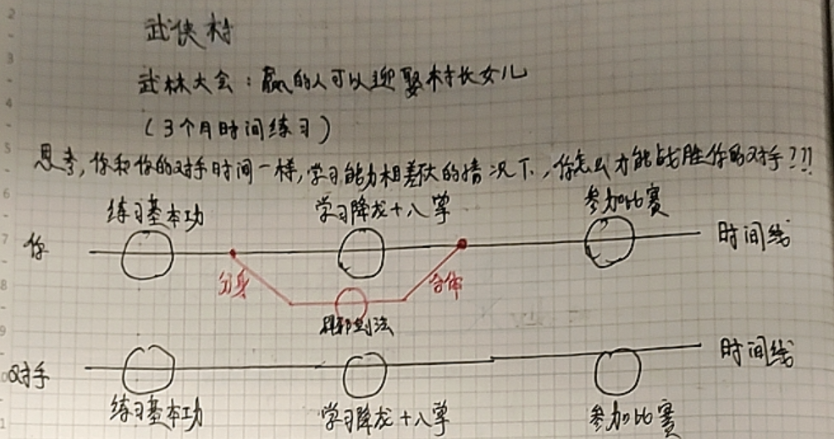 武侠村
武林大会：赢的人可以迎娶村长女儿
（3个月时间练习）
思考，你和你的对手时间一样，学习能力相差不大的情况下，你怎么才能战胜你的对手???
练习基本功 学习降龙十八掌 参加比赛
你 时间线
分身 合体
辟邪剑法
对手 时间线
练习基本功 学习降龙十八掌 参加比赛